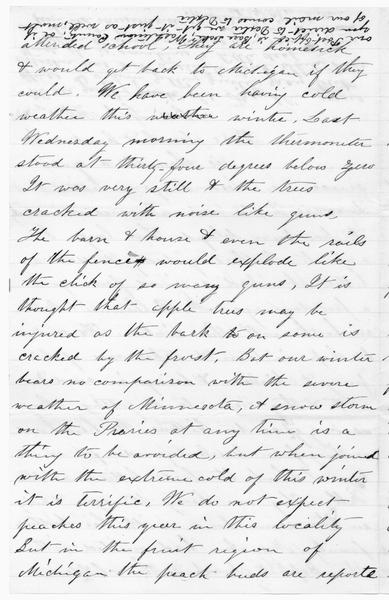 attended school, They are homesick
& would get back to Michigan if they
could. We have been having cold
weather this winter, Last
Wednesday morning the thermometer
stood at thirty-four degrees below Zero
It was very still & the trees
cracked with noise like guns
The barn & house & even the rails
of the fence would explode like
the click of so many guns, It is
thought that apple trees may be
injured as the bark on some is
cracked by the frost. But our winter
bears no comparison with the severe
weather of Minnesota, A snow storm
on the Praries at any time is a
thing to be avoided, but when joined
with the extreme cold of this winter
it is terrific, We do not expect
peaches this year in this locality
But in the fruit region of
Michigan the peach buds are reported
our Post Office is
you direct to Delia
of our mail comes to Delia